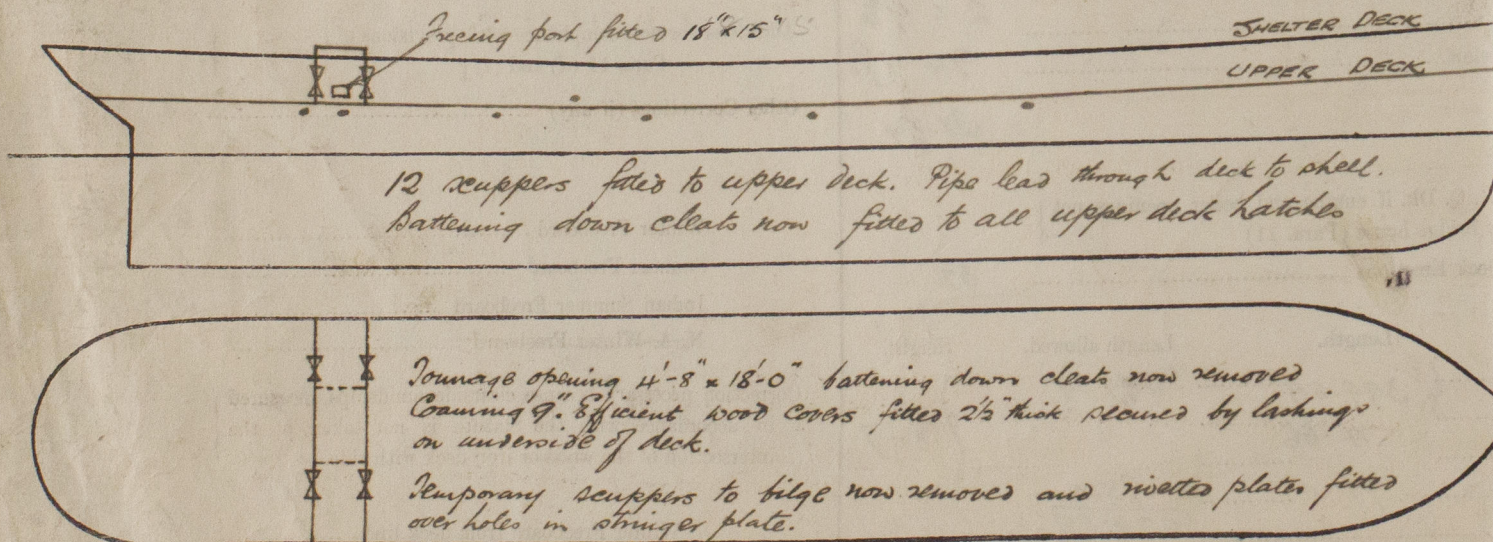 Freeing port fitted 18" x 15"
SHELTER DECK
UPPER DECK
12 scuppers fitted to upper deck. Pipe lead through deck to shell.
Battening down cleats now fitted to all upper deck hatches
Tonnage opening 4'-8" x 18'-0" battening down cleats now removed
Coaming 9". Efficient wood covers fitted 2½" thick secured by lashings
on underside of deck.
Temporary scuppers to bilge now removed and rivetted plates fitted
over holes in stringer plate.